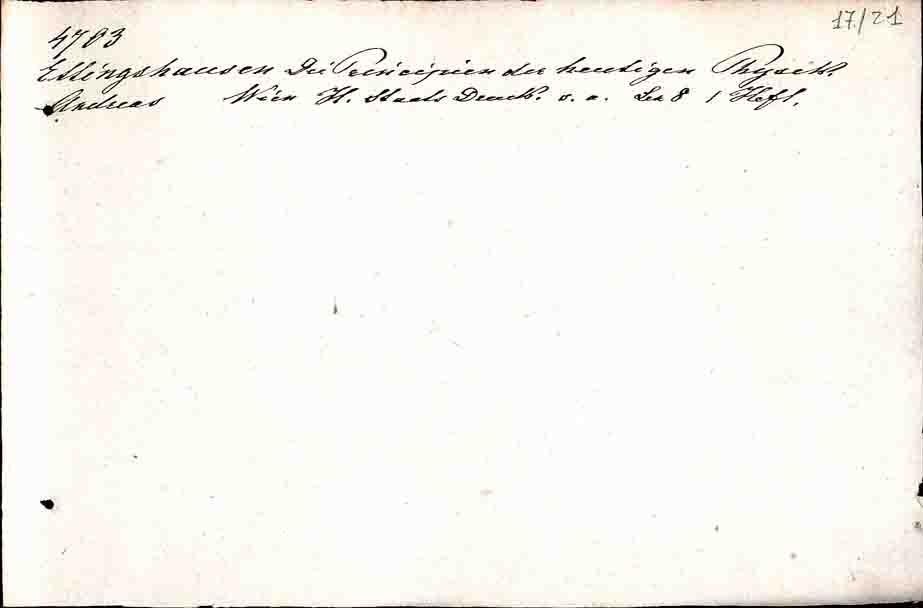 17/21
4703
Ettingshausen Die Principien der heutigen Physik.
Andreas Wien H. Staats Druck. s. a. Lex 8 1 Heft.